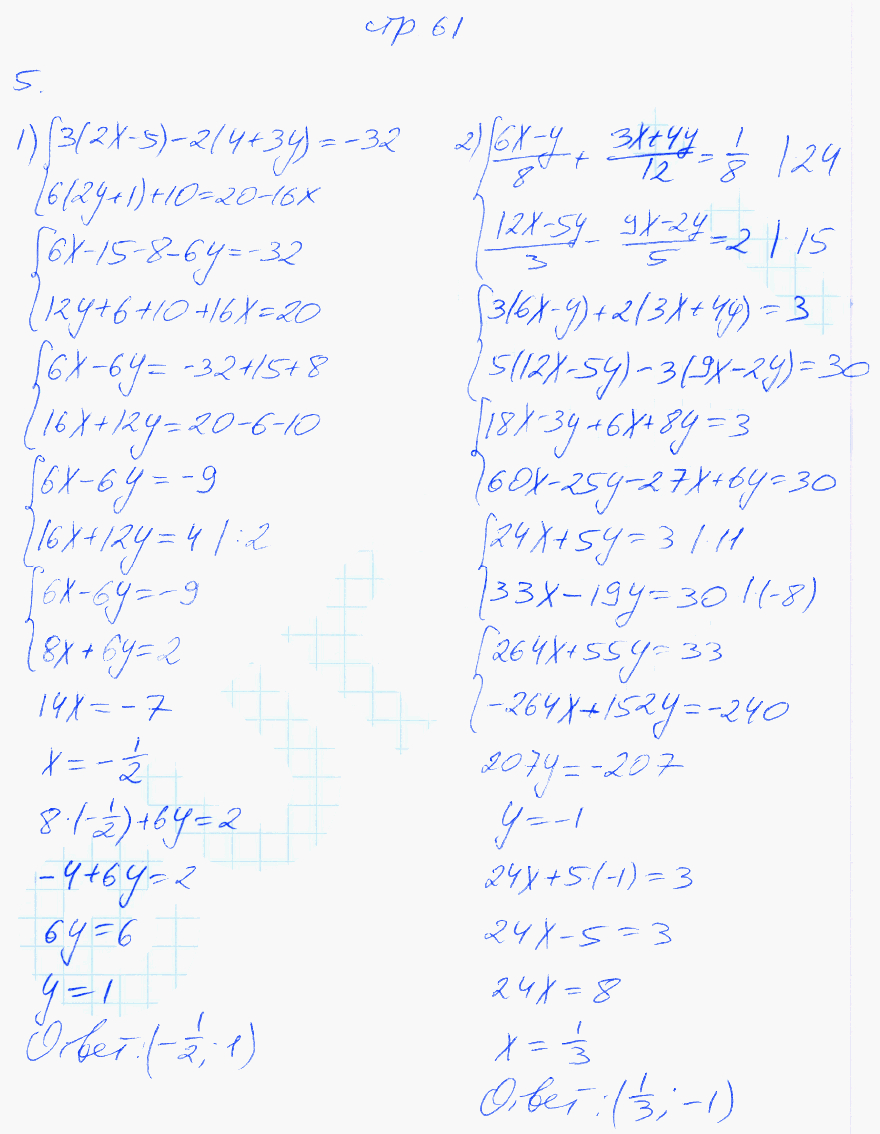 стр 61
5.
1) {3(2x-5)-2(4+3y)=-32
6(2y+1)+10=20-16x
{6x-15-8-6y=-32
12y+6+10+16x=20
{6x-6y=-32+15+8
16x+12y=20-6-10
{6x-6y=-9
16x+12y=4 |:2
{6x-6y=-9
8x+6y=2
14x=-7
x=-1/2
8·(-1/2)+6y=2
-4+6y=2
6y=6
y=1
Ответ:(-1/2; 1)
2) {(6x-y)/8 + (3x+4y)/12 = 1/8 |24
(12x-5y)/3 - (9x-2y)/5 = 2 |·15
{3(6x-y)+2(3x+4y)=3
5(12x-5y)-3(9x-2y)=30
{18x-3y+6x+8y=3
60x-25y-27x+6y=30
{24x+5y=3 |·11
33x-19y=30 |(-8)
{264x+55y=33
-264x+152y=-240
207y=-207
y=-1
24x+5·(-1)=3
24x-5=3
24x=8
x=1/3
Ответ:(1/3; -1)